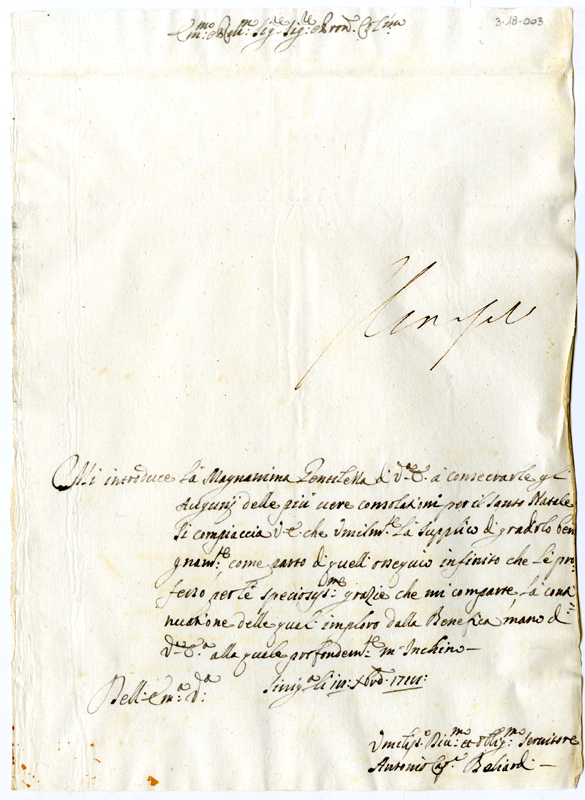 3-18-003
Em:mo e Rev:mo Sig:re Sig:re e Pron:
Mi introduce la Magnanima Gentilezza di V.ra E.a à consecrarle gl
Augurij delle più vere consolationi per il Santo Natale
Si compiaccia V.E. che Umilm:te La Supplico di gradirlo beni
gnam:te come parto di quell'ossequio infinito che le pro
fesso per le speciosiss:me grazie che mi comparte, la conti
nuatione delle quali imploro dalla Benefica mano di
V.ra E.a alla quale profondem:te m'Inchino
Dell'Em:a V.a
Sinig:a li
Umiliss:o Div:mo et Obblig:mo Servitore
Antonio Beliardi